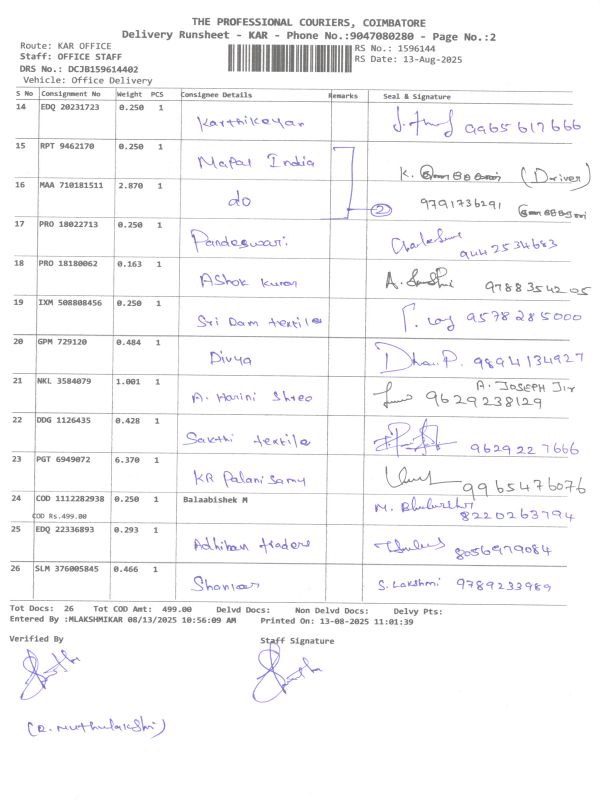 THE PROFESSIONAL COURIERS, COIMBATORE
Delivery Runsheet - KAR - Phone No.:9047080280 - Page No.:2
Route: KAR OFFICE
RS No.: 1596144
Staff: OFFICE STAFF
RS Date: 13-Aug-2025
DRS No.: DCJB159614402
Vehicle: Office Delivery
S No Consignment No Weight PCS Consignee Details Remarks Seal & Signature
14 EDQ 20231723 0.250 1 Karthikeyan 9965617666
15 RPT 9462170 0.250 1 Mapal India K. (Driver)
16 MAA 710181511 2.870 1 do 2 9791736291
17 PRO 18022713 0.250 1 Pandeswari 9442534683
18 PRO 18180062 0.163 1 AShok kumar A. 9788354205
19 IXM 508808456 0.250 1 Sri Dam textile 9578285000
20 GPM 729120 0.484 1 Divya 9894134927
21 NKL 3584079 1.001 1 A. Harini Shree A. JOSEPH 9629238129
22 DDG 1126435 0.428 1 Sakthi textile 9629227666
23 PGT 6949072 6.370 1 KR Palanisamy 9965476076
24 COD 1112282938 0.250 1 Balaabishek M M. 8220263794
COD Rs.499.00
25 EDQ 22336893 0.293 1 Adhiban traders 8056979084
26 SLM 376005845 0.466 1 Shankar S. Lakshmi 9789233989
Tot Docs: 26 Tot COD Amt: 499.00 Delvd Docs: Non Delvd Docs: Delvy Pts:
Entered By :MLAKSHMIKAR 08/13/2025 10:56:09 AM Printed On: 13-08-2025 11:01:39
Verified By Staff Signature
(R. Muthulakshmi)